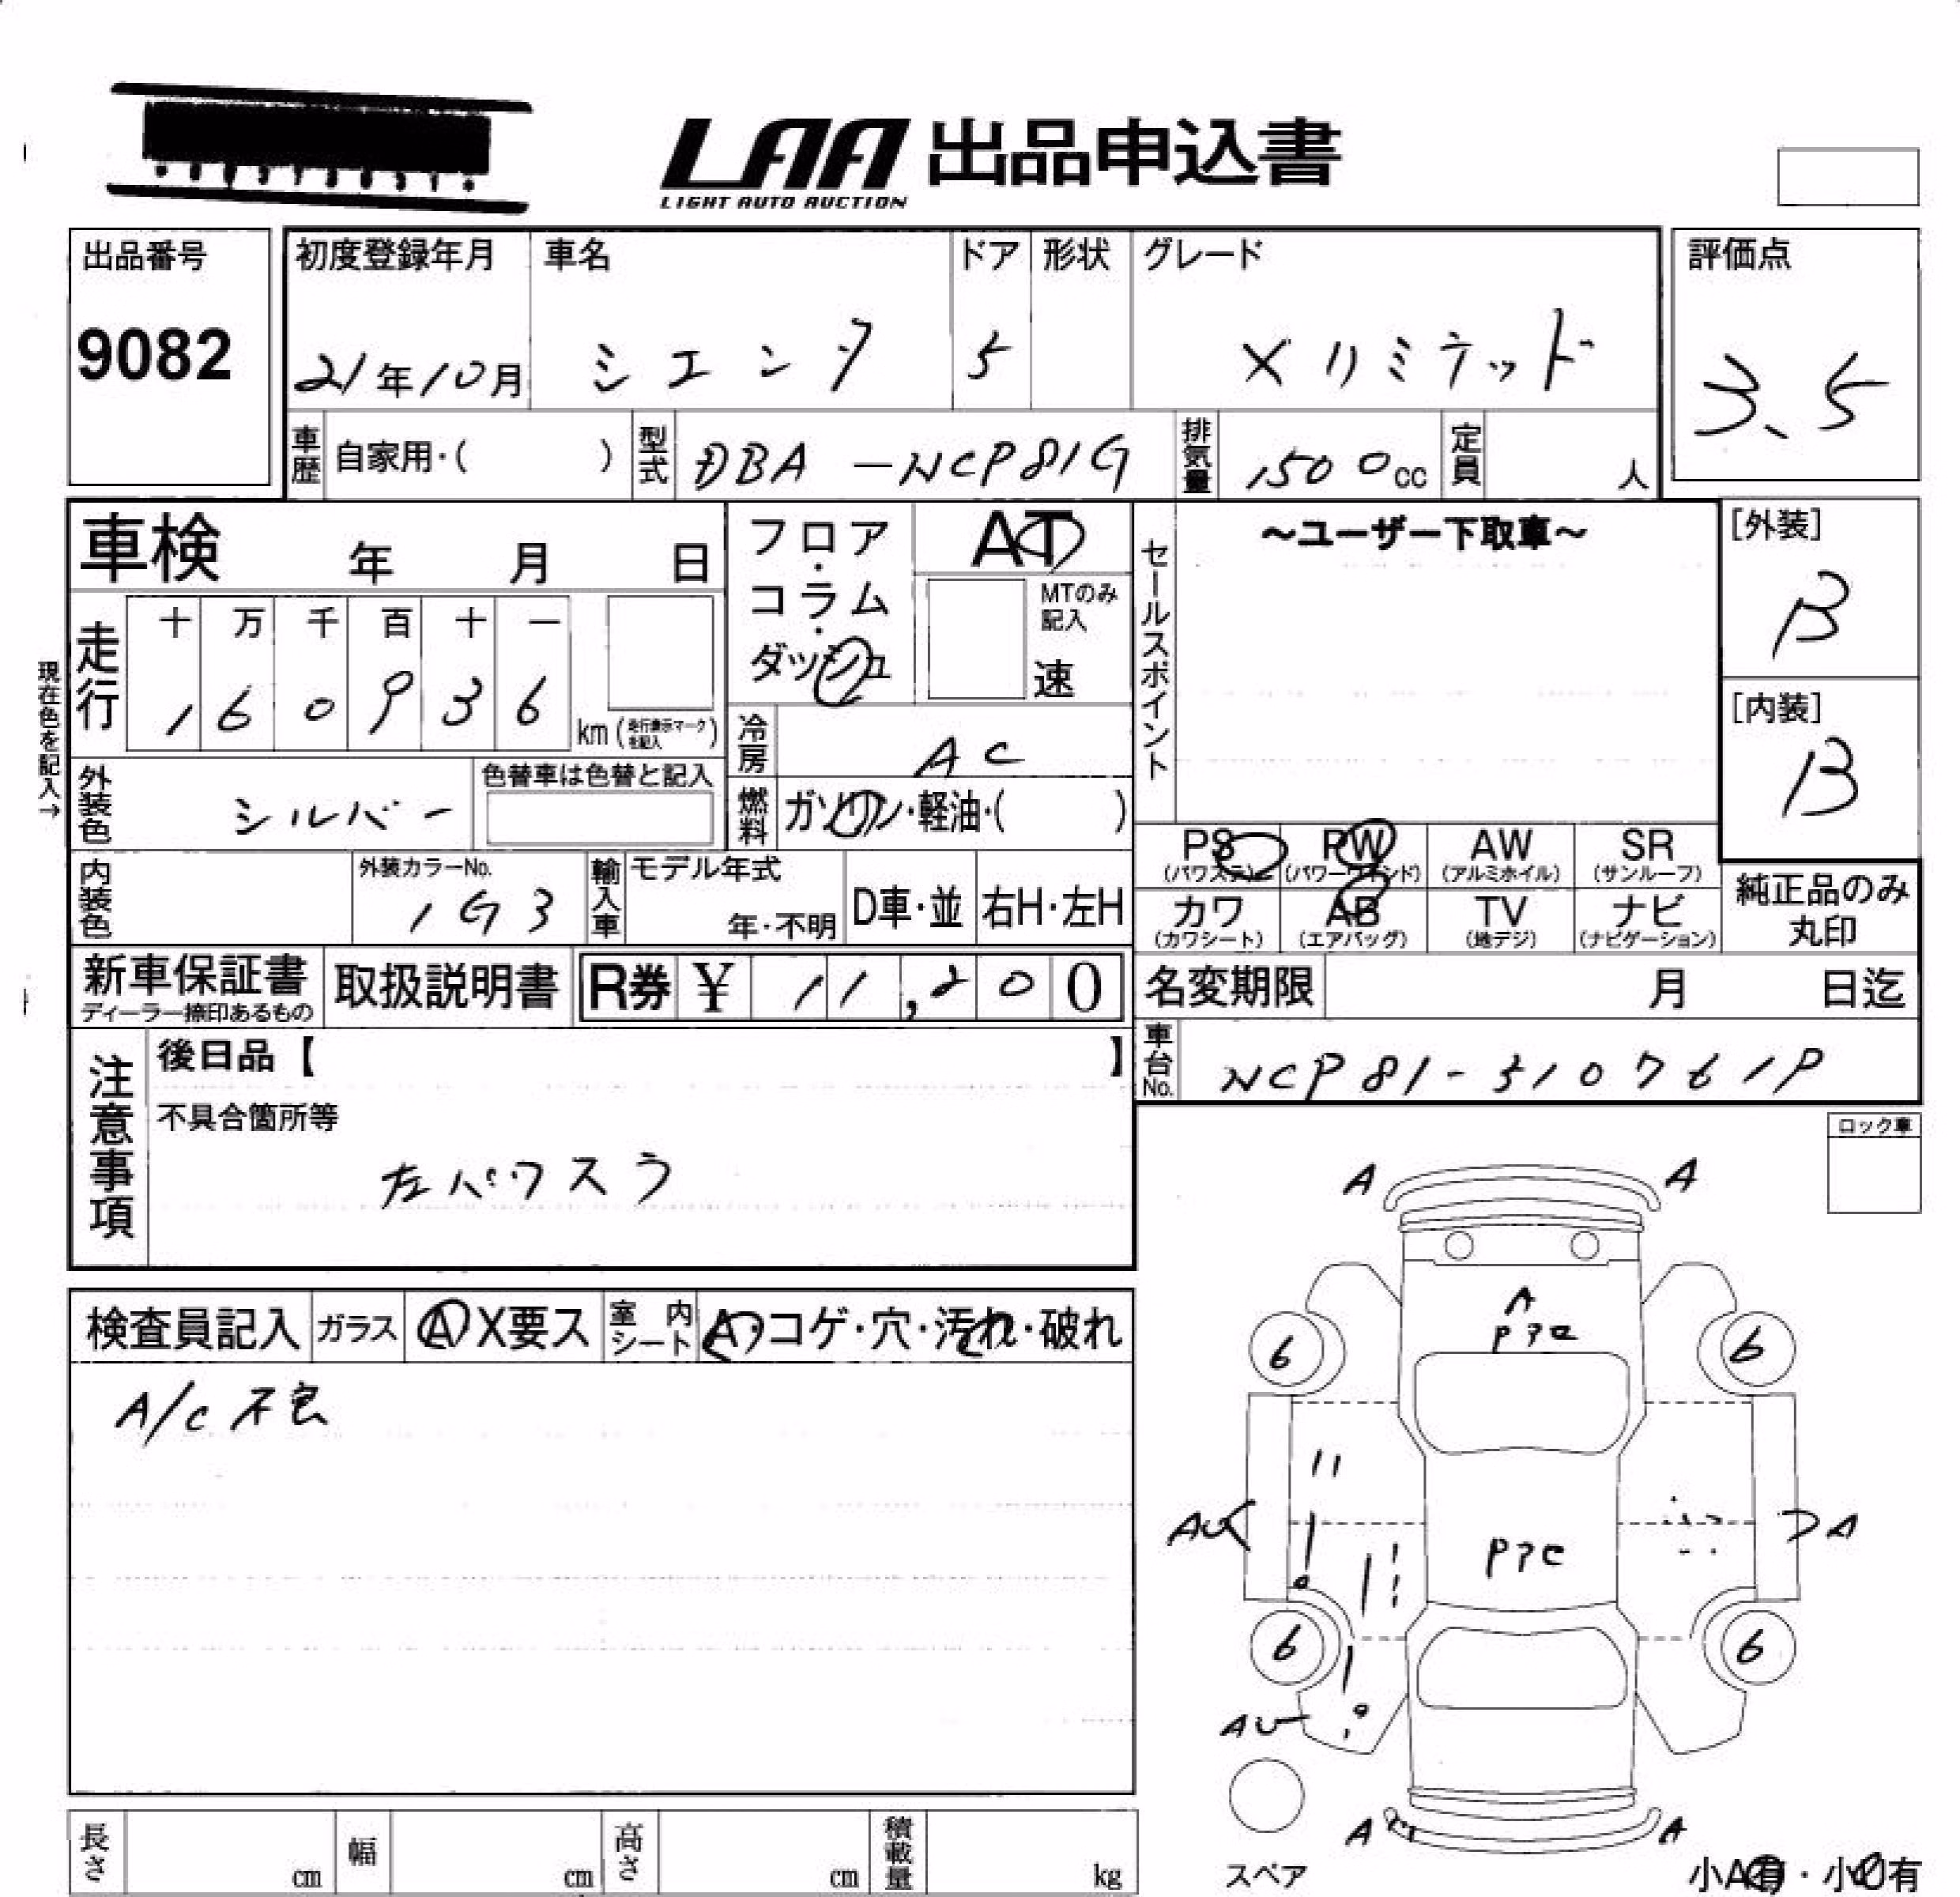 LAA 出品申込書
LIGHT AUTO AUCTION
出品番号
9082
初度登録年月
21年10月
車名
シエンタ
ドア
5
形状
グレード
Xリミテッド
評価点
3.5
車歴 自家用・( )
型式 DBA-NCP81G
排気量 1500cc
定員 人
車検 年 月 日
フロア・コラム・ダッシュ
AT
MTのみ記入
速
セールスポイント
～ユーザー下取車～
[外装]
B
[内装]
B
現在色を記入→
走行
十 万 千 百 十 一
1 6 0 9 3 6 km (走行表示マークを記入)
冷房 AC
外装色 シルバー
色替車は色替と記入
燃料 ガソリン・軽油・( )
PS (パワステ) PW (パワーウインド) AW (アルミホイル) SR (サンルーフ)
カワ (カワシート) AB (エアバッグ) TV (地デジ) ナビ (ナビゲーション)
純正品のみ丸印
内装色
外装カラーNo.
1G3
輸入車
モデル年式
年・不明
D車・並
右H・左H
新車保証書
ディーラー捺印あるもの
取扱説明書
R券 ¥ 11,200
名変期限 月 日迄
車台No. NCP81-510761P
注意事項
後日品【 】
不具合箇所等
左パワスラ
ロック車
検査員記入
ガラス
A X要ス
室内シート
A・コゲ・穴・汚れ・破れ
A/C 不良
A A
A
6 6
AU A
6 6
AU
A A
スペア
長さ cm
幅 cm
高さ cm
積載量 kg
小A有・小U有